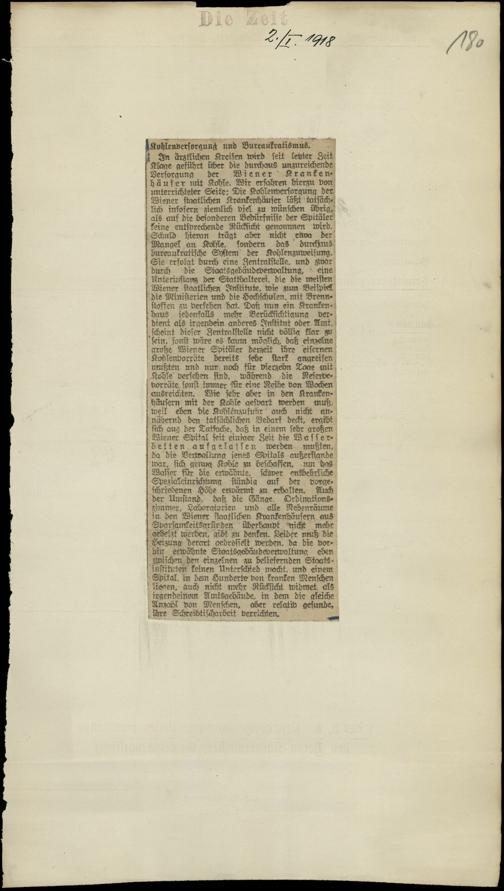 Die Zeit
2./I. 1918
180
Kohlenversorgung und Bureaukratismus.
In ärztlichen Kreisen wird seit letzter Zeit
Klage geführt über die durchaus unzureichende
Versorgung der Wiener Kranken-
häuser mit Kohle. Wir erfahren hierzu von
unterrichteter Seite: Die Kohlenversorgung der
Wiener staatlichen Krankenhäuser läßt tatsäch-
lich insofern ziemlich viel zu wünschen übrig,
als auf die besonderen Bedürfnisse der Spitäler
keine entsprechende Rücksicht genommen wird.
Schuld hieran trägt aber nicht etwa der
Mangel an Kohle, sondern das durchaus
bureaukratische System der Kohlenzuweisung.
Sie erfolgt durch eine Zentralstelle, und zwar
durch die Staatsgebäudeverwaltung, eine
Unterinstanz der Statthalterei, die die meisten
Wiener staatlichen Institute, wie zum Beispiel
die Ministerien und die Hochschulen, mit Brenn-
stoffen zu versehen hat. Daß nun ein Kranken-
haus jedenfalls mehr Berücksichtigung ver-
dient als irgendein anderes Institut oder Amt,
scheint dieser Zentralstelle nicht völlig klar zu
sein, sonst wäre es kaum möglich, daß einzelne
große Wiener Spitäler derzeit ihre eisernen
Kohlenvorräte bereits sehr stark angreifen
mußten und nur noch für vierzehn Tage mit
Kohle versehen sind, während die Reserve-
vorräte sonst immer für eine Reihe von Wochen
ausreichten. Wie sehr aber in den Kranken-
häusern mit der Kohle gespart werden muß,
weil eben die Kohlenzufuhr auch nicht an-
nähernd den tatsächlichen Bedarf deckt, ergibt
sich aus der Tatsache, daß in einem sehr großen
Wiener Spital seit einiger Zeit die Wasser-
betten aufgelassen werden mußten,
da die Verwaltung jenes Spitals außerstande
war, sich genug Kohle zu beschaffen, um das
Wasser für die erwähnte, schwer entbehrliche
Spezialeinrichtung ständig auf der vorge-
schriebenen Höhe erwärmt zu erhalten. Auch
der Umstand, daß die Gänge, Ordinations-
zimmer, Laboratorien und alle Nebenräume
in den Wiener staatlichen Krankenhäusern aus
Sparsamkeitsgründen überhaupt nicht mehr
geheizt werden, gibt zu denken. Leider muß die
Heizung derart gedrosselt werden, da die vor-
hin erwähnte Staatsgebäudeverwaltung eben
zwischen den einzelnen zu beliefernden Staats-
instituten keinen Unterschied macht, und einem
Spital, in dem Hunderte von kranken Menschen
liegen, auch nicht mehr Rücksicht widmet als
irgendeinem Amtsgebäude, in dem die gleiche
Anzahl von Menschen, aber relativ gesunde,
ihre Schreibtischarbeit verrichten.